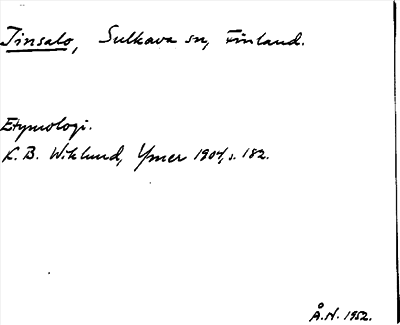 Iinsalo, Sulkava sn, Finland.
Etymologi.
K. B. Wiklund, Ymer 1904, s. 182.
Å.N. 1952.